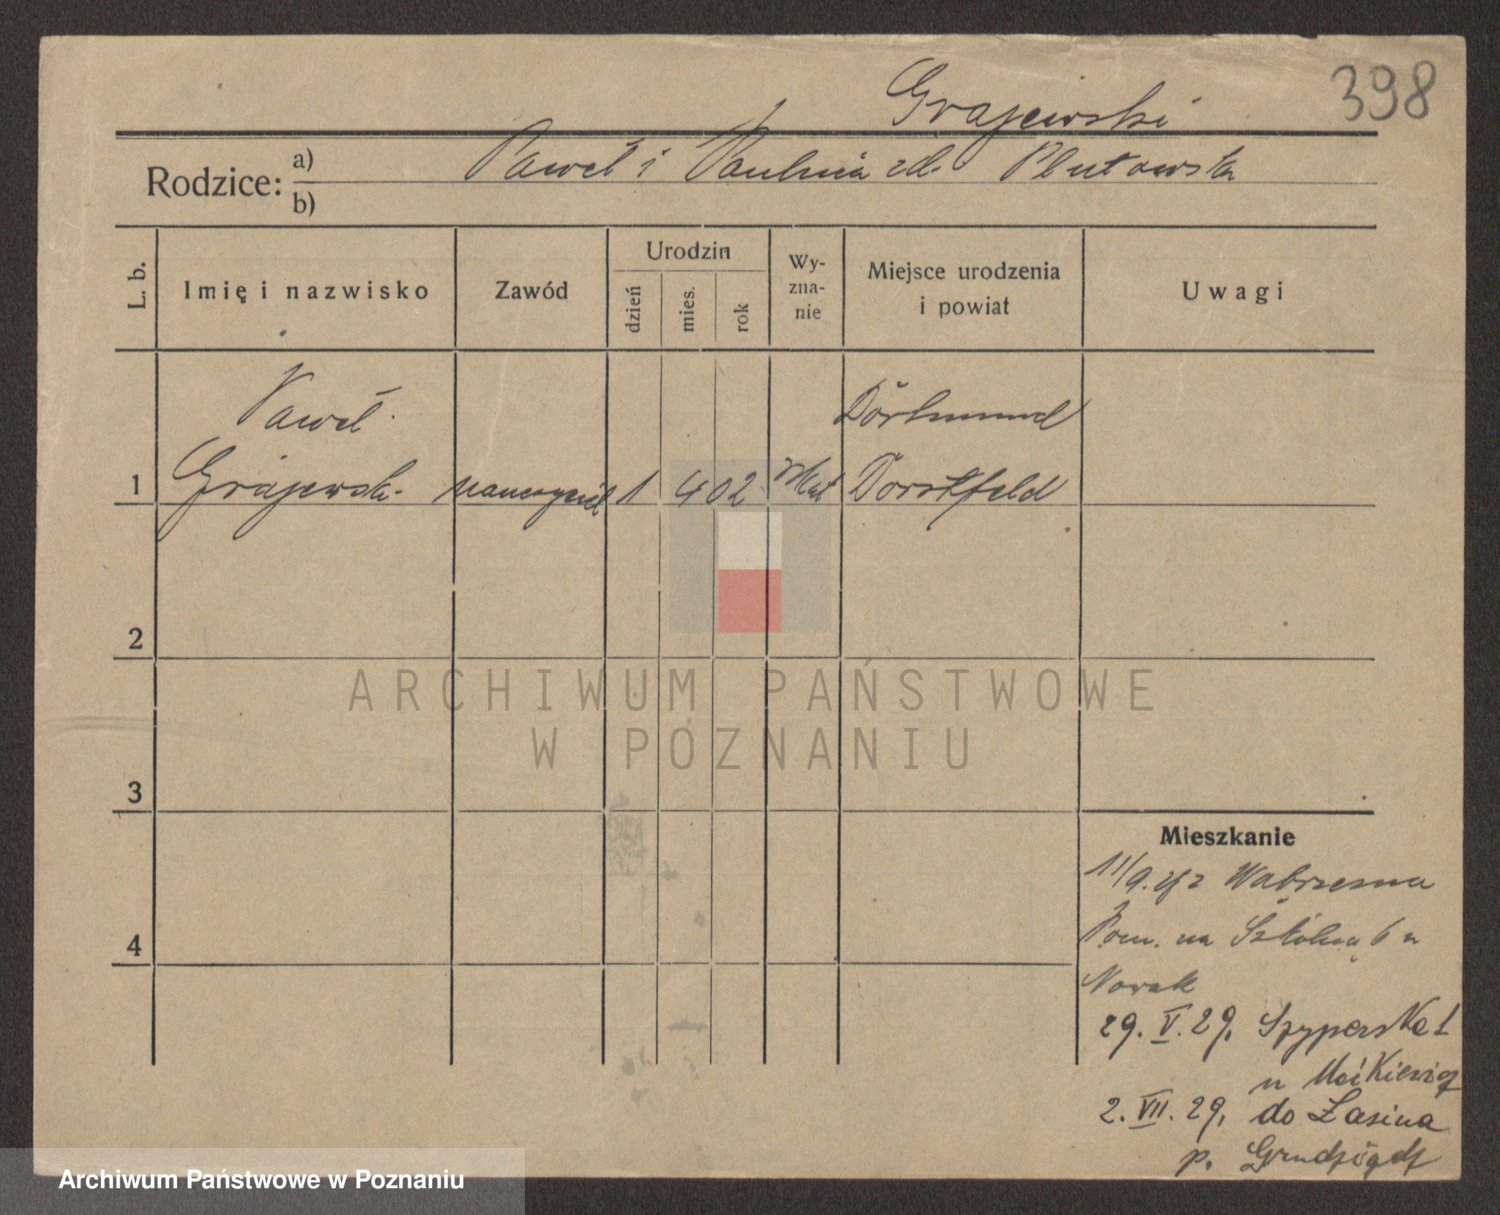 398
Grajewski
Rodzice: a) Paweł i Paulina zd. Plutowska
b)
L. b.
Imię i nazwisko
Zawód
Urodzin
dzień
mies.
rok
Wy-
zna-
nie
Miejsce urodzenia
i powiat
Uwagi
Paweł
Dortmund
1 Grajewski nauczyciel 1 4 02 kat Dorstfeld
2
3
4
ARCHIWUM PAŃSTWOWE
W POZNANIU
Mieszkanie
11/9. z Wąbrzeźna
Pom. na Szkolną 6 u
Nowak
29. V. 29. Szyperska 1
u
2. VII. 29. do Łasina
p. Grudziądz
Archiwum Państwowe w Poznaniu